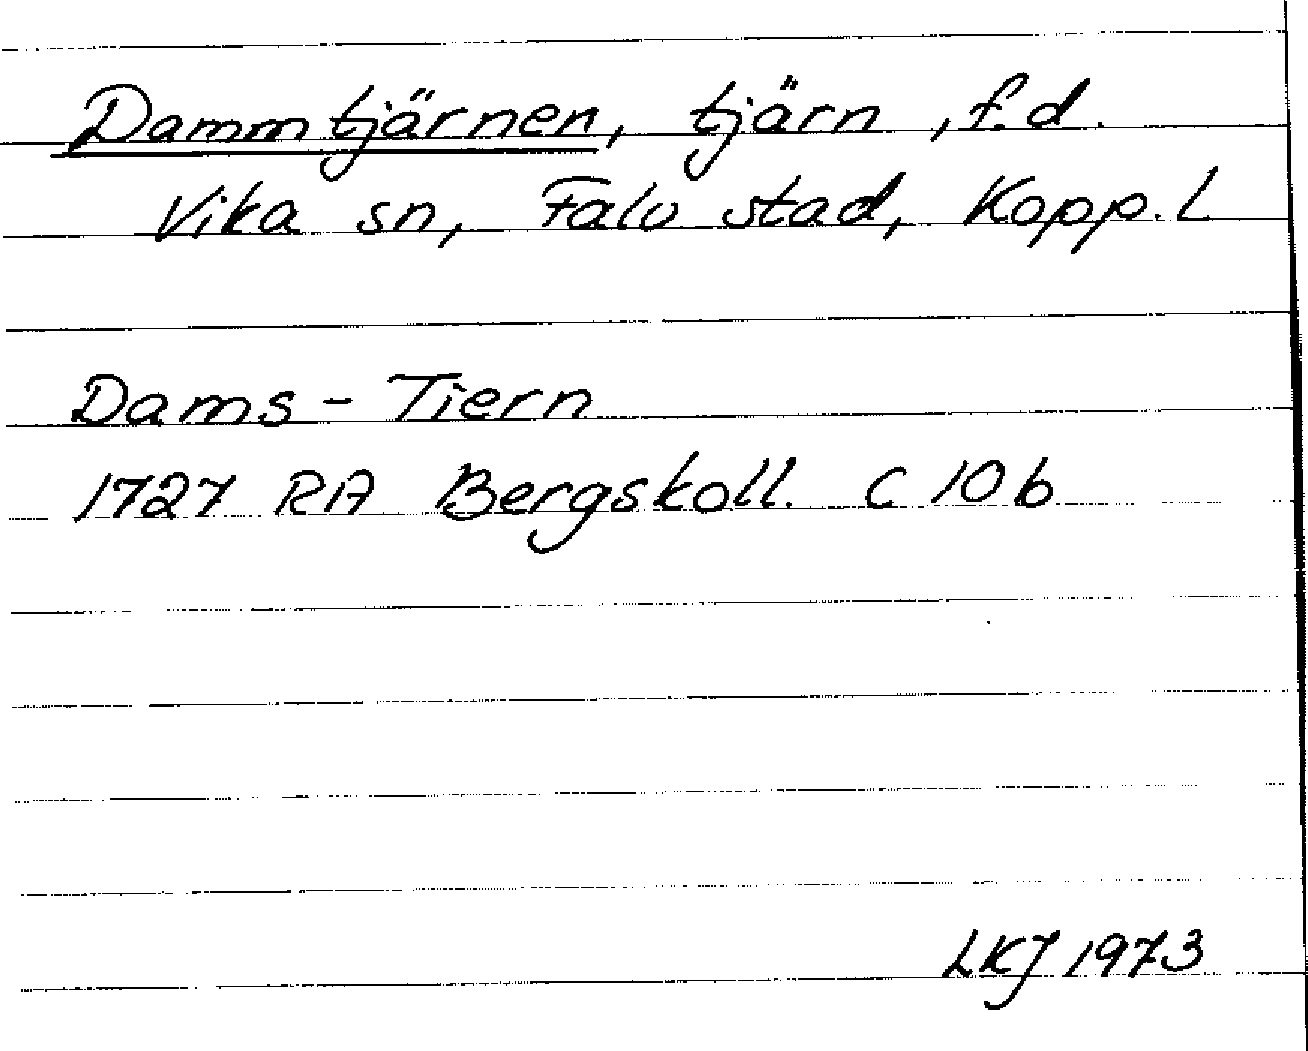 Dammtjärnen, tjärn, f.d.
Vika sn, Falu stad, Kopp. L
Dams-Tiern
1727 RA Bergskoll. C 10 b
LKJ 1973